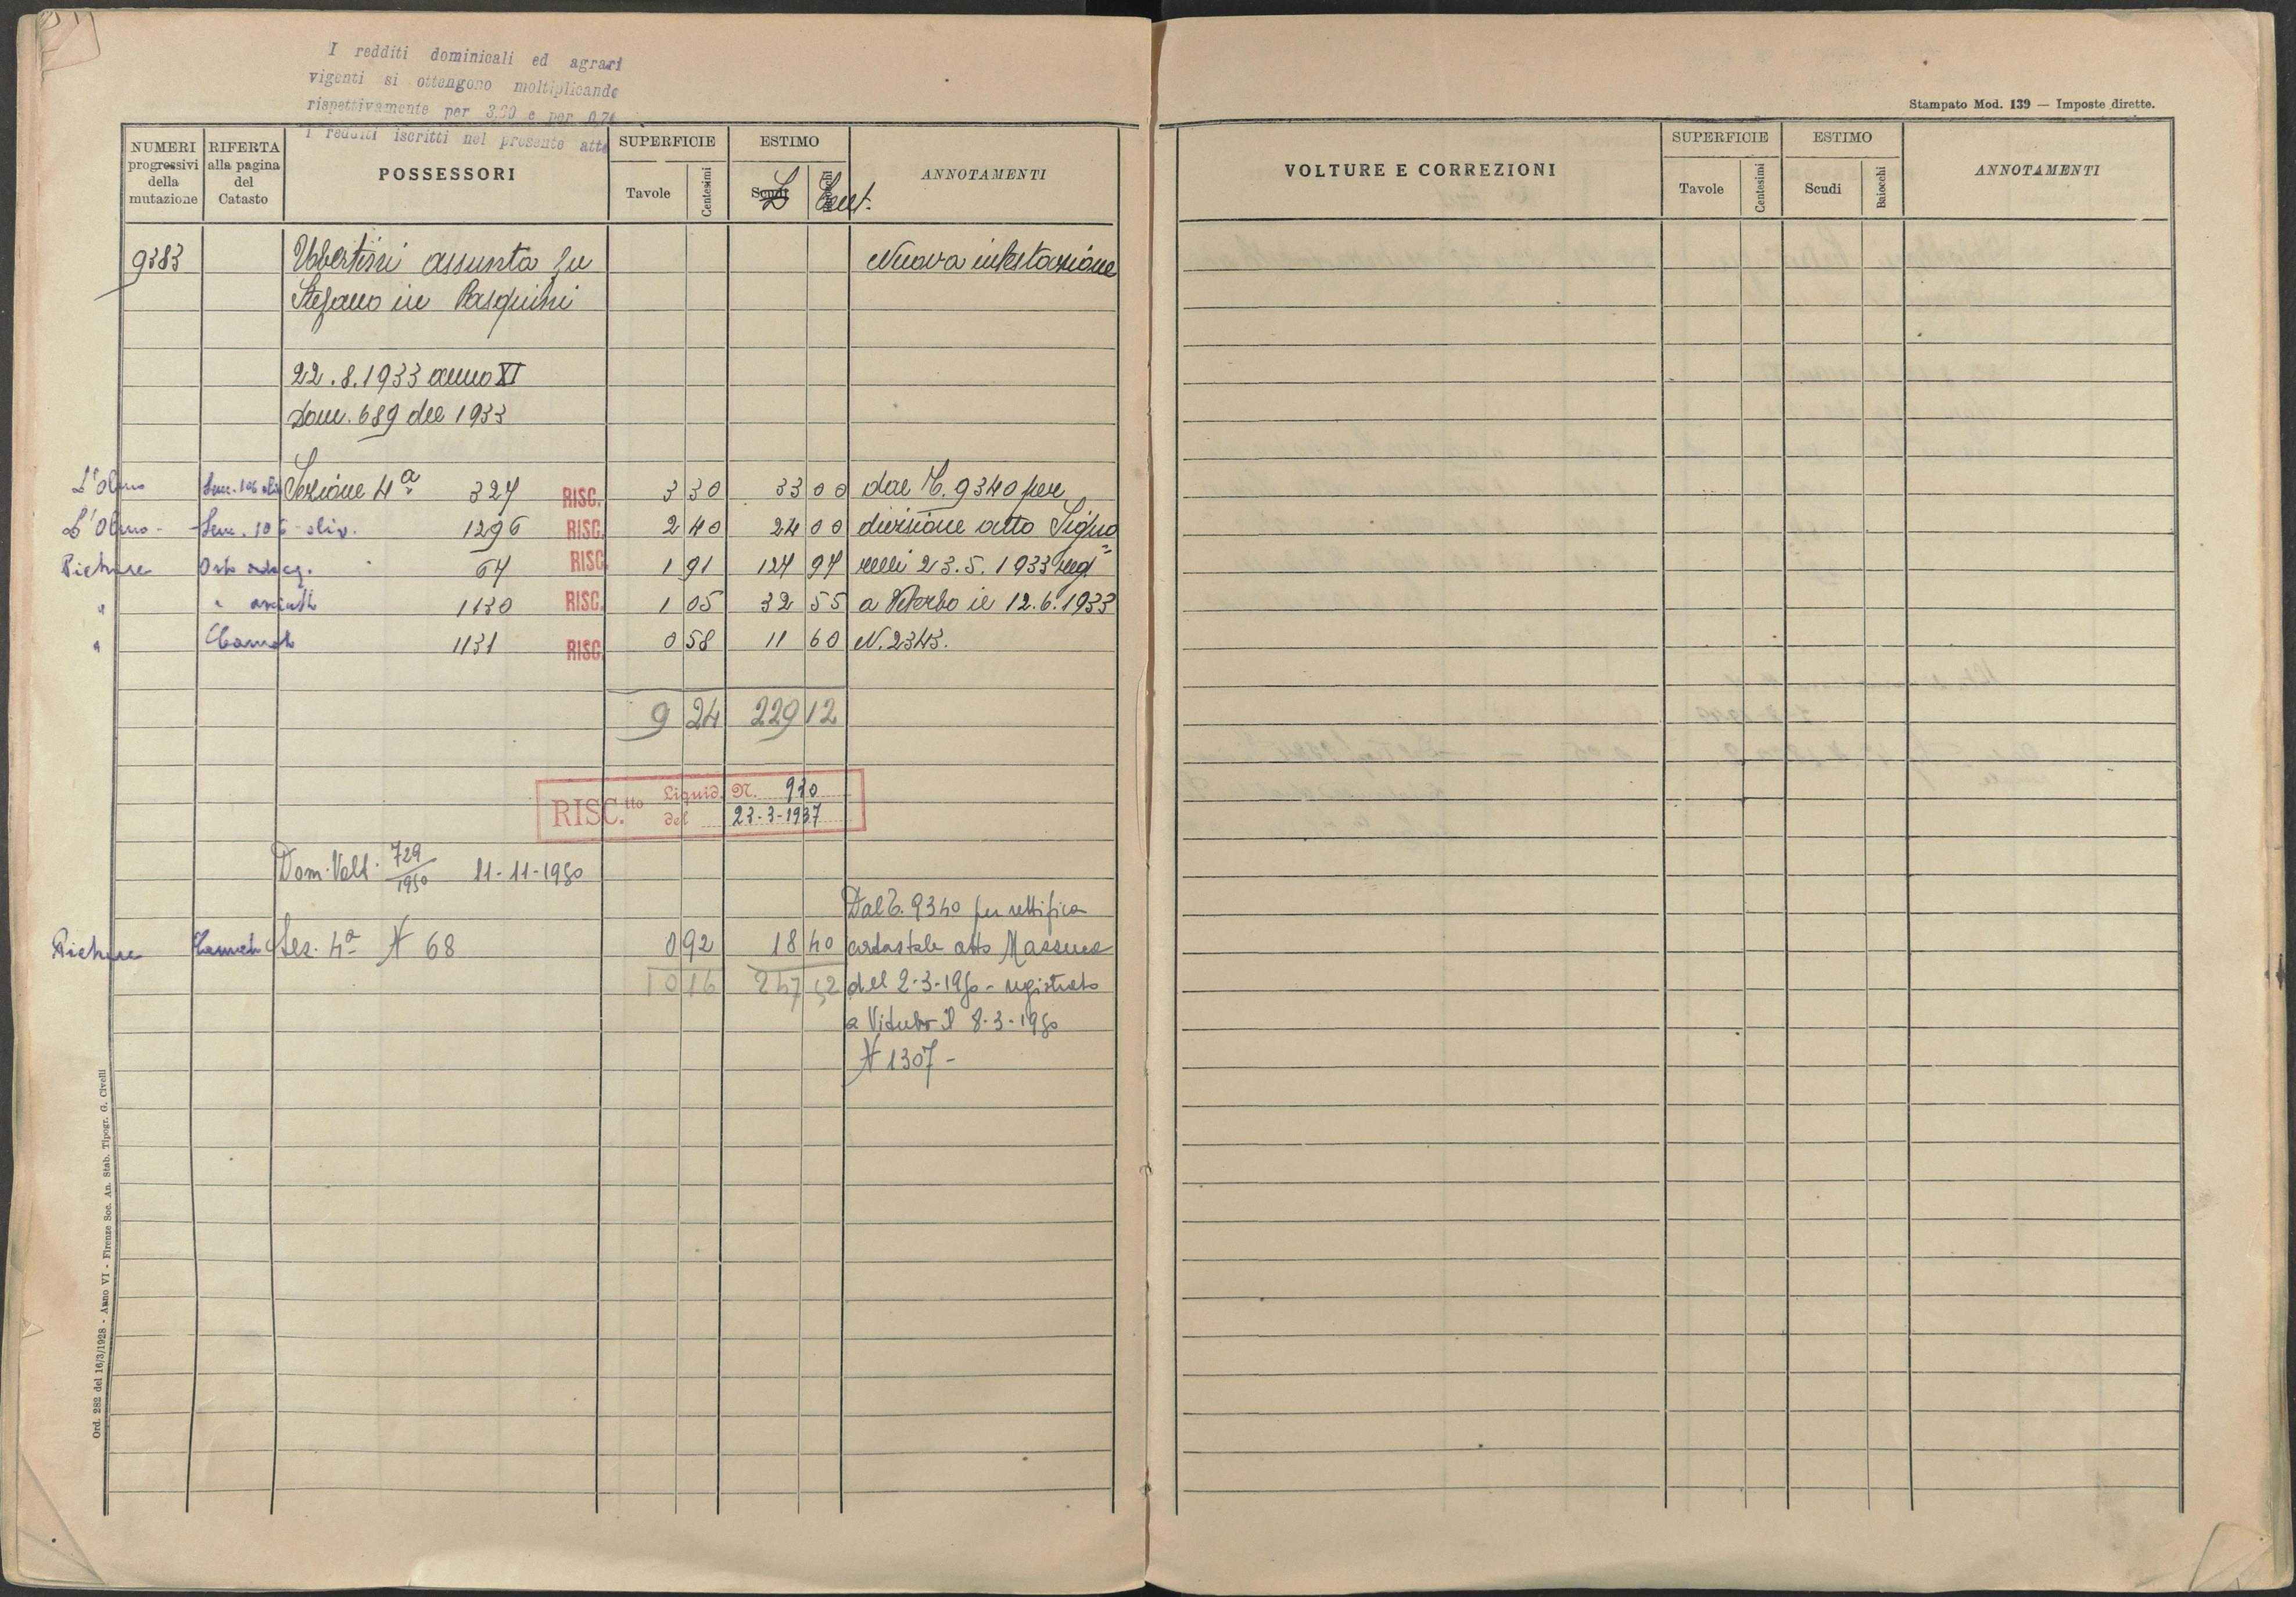 I redditi dominicali ed agrari
vigenti si ottengono moltiplicando
rispettivamente per 3,60 e per 0,74
i redditi iscritti nel presente atto
Stampato Mod. 139 — Imposte dirette.
NUMERI progressivi della mutazione
RIFERTA alla pagina del Catasto
POSSESSORI
SUPERFICIE
Tavole Centesimi
ESTIMO
Scudi £ Baiocchi Cent.
ANNOTAMENTI
9383 Ubertini assunta fu Nuova intestazione
Stefano in Pasquini
22.8.1933 anno XI
Dom. 689 del 1933
L'Olmo Sezione 4a 327 RISC. 3 30 33 00 dal T. 9340 per
L'Olmo - Sem. 106 oliv. 1296 RISC. 2 40 24 00 divisione atto Signo
Pietrare Orto adacq. 67 RISC. 1 91 127 97 relli 23.5.1933 reg
" " asciutto 1130 RISC. 1 05 32 55 a Viterbo il 12.6.1933
" Canneto 1131 RISC. 0 58 11 60 N. 2343.
9 24 229 12
RISC.tto Liquid. N. 930
del 23-3-1937
Dom. Volt. 729/1950 11-11-1950
Dal T. 9340 per rettifica
Pietrare Canneto Sez. 4a N 68 0 92 18 40 catastale atto
10 16 247 52 del 2-3-1950 - registrato
a Viterbo il 8-3-1950
N 1307 -
Ord. 282 del 16/3/1928 - Anno VI - Firenze Soc. An. Stab. Tipogr. G. Civelli
VOLTURE E CORREZIONI
SUPERFICIE
Tavole Centesimi
ESTIMO
Scudi Baiocchi
ANNOTAMENTI